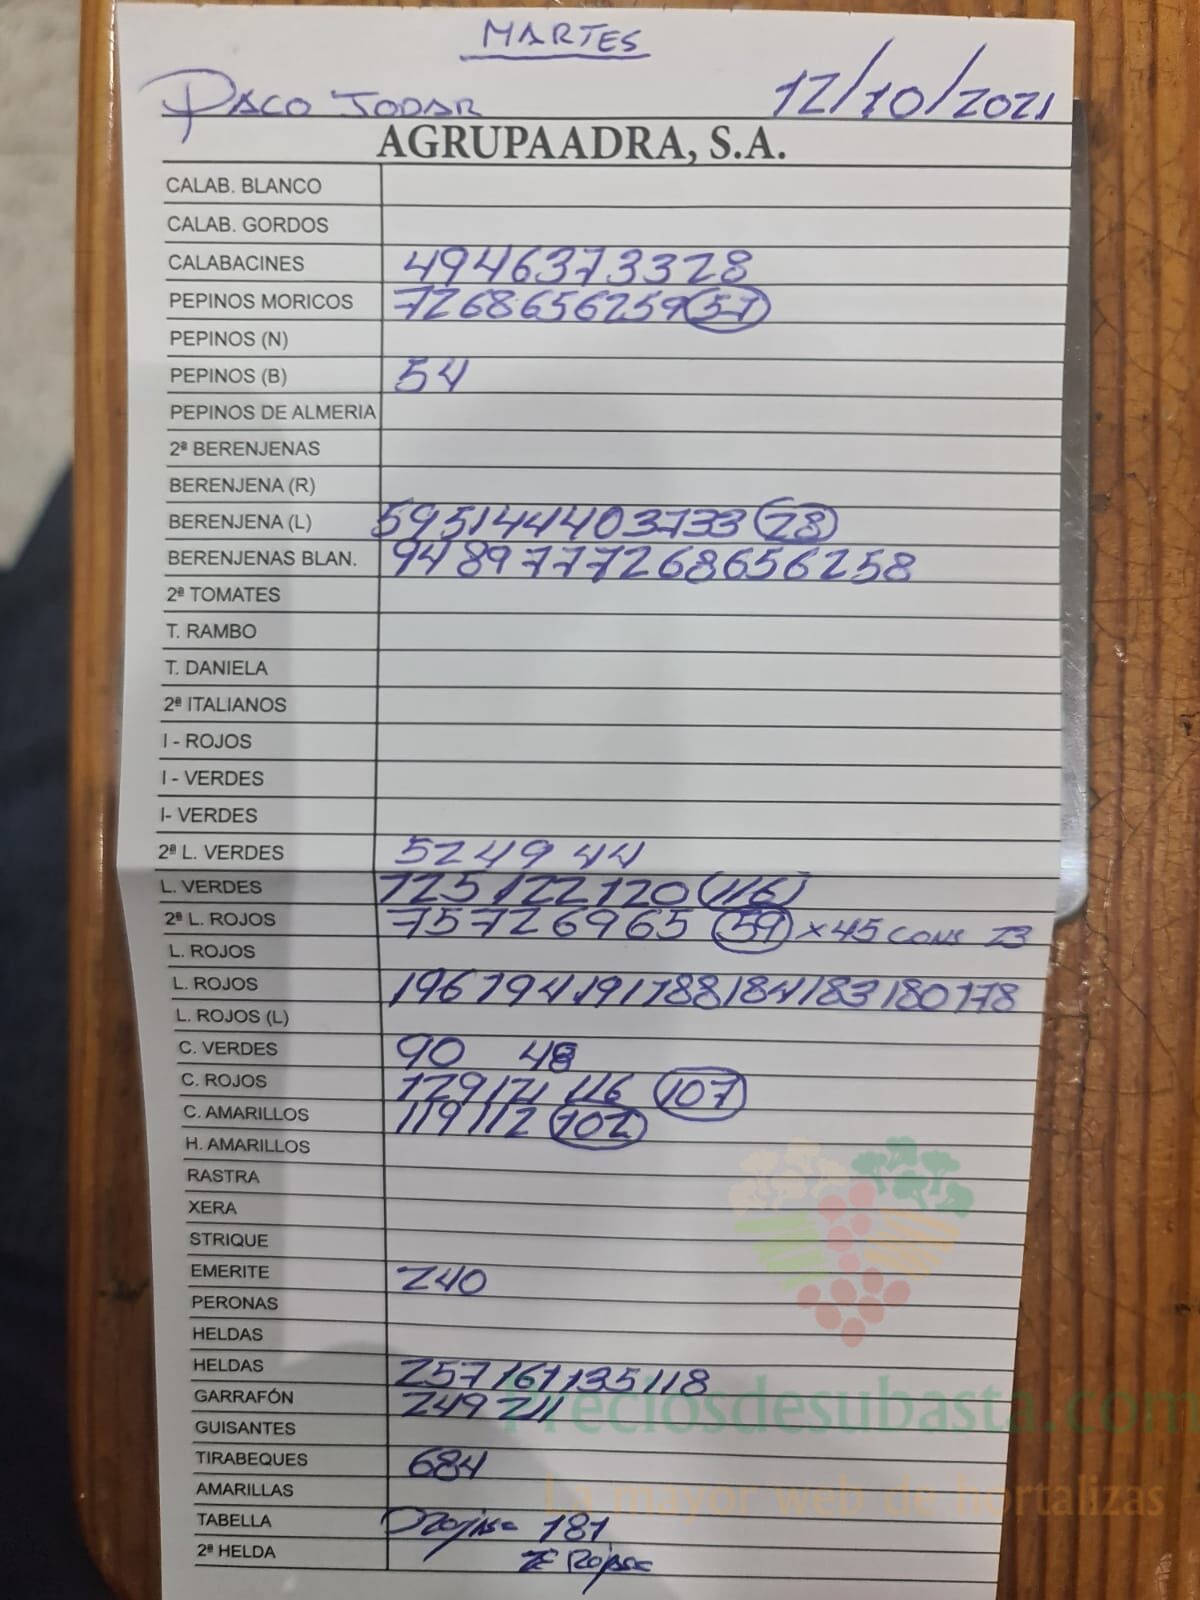 MARTES
PACO JODAR 12/10/2021
AGRUPAADRA, S.A.
CALAB. BLANCO
CALAB. GORDOS
CALABACINES 4946373328
PEPINOS MORICOS 7268656259 57
PEPINOS (N)
PEPINOS (B) 54
PEPINOS DE ALMERIA
2ª BERENJENAS
BERENJENA (R)
BERENJENA (L) 59514444403733 28
BERENJENAS BLAN. 9489777268656258
2ª TOMATES
T. RAMBO
T. DANIELA
2ª ITALIANOS
I - ROJOS
I - VERDES
I- VERDES
2ª L. VERDES 5249 44
L. VERDES 125 122 120 (116)
2ª L. ROJOS 75726965 59 x 45 CONS 23
L. ROJOS
L. ROJOS 196 194 191 188 184 183 180 178
L. ROJOS (L)
C. VERDES 90 48
C. ROJOS 129 121 116 107
C. AMARILLOS 119 112 102
H. AMARILLOS
RASTRA
XERA
STRIQUE
EMERITE 240
PERONAS
HELDAS
HELDAS 257 161 135 118
GARRAFÓN 249 211
GUISANTES
TIRABEQUES 684
AMARILLAS
TABELLA 181
2ª HELDA
Preciosdesubasta.com
La mayor web de hortalizas